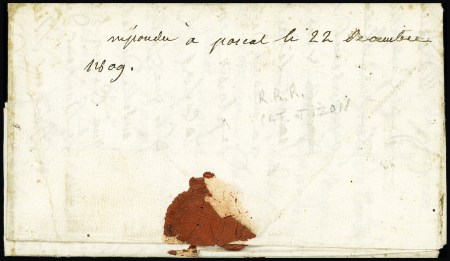 répondu à pascal le 22 Decembre
1809.
R.R.R.
CAT. TIZON